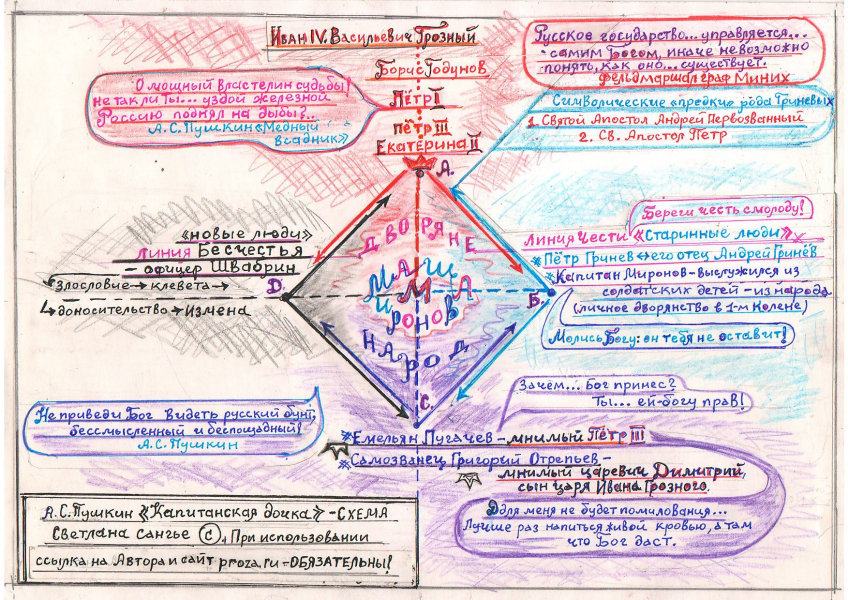 Иван IV. Васильевич Грозный
Борис Годунов
Пётр I
пётр III
Екатерина II
А.
О мощный властелин судьбы!
не так ли ты... уздой железной
Россию поднял на дыбы?..
А.С. Пушкин «Медный
всадник»
Русское государство... управляется...
- самим Богом, иначе невозможно
понять, как оно... существует.
Фельдмаршал граф Миних
Символические «предки» рода Гриневых
1. Святой Апостол Андрей Первозванный
2. Св. Апостол Петр
«новые люди»
Линия Бесчестья
- офицер Швабрин
D.
Злословие → клевета →
↳ доносительство → Измена
ДВОРЯНЕ
МАША
МИРОНОВА
НАРОД
Б.
С.
Береги честь смолоду!
Линия Чести «Старинные люди»
* Пётр Гринев ↔ его отец Андрей Гринёв
* Капитан Миронов - выслужился из
солдатских детей - из народа
(личное дворянство в 1-м колене)
Молись Богу: он тебя не оставит!
Зачем... Бог принес?
Ты... ей-богу прав!
Не приведи Бог видеть русский бунт,
бессмысленный и беспощадный!
А.С. Пушкин
* Емельян Пугачев - мнимый Пётр III
* Самозванец Григорий Отрепьев -
мнимый царевич Димитрий,
сын царя Ивана Грозного.
Ддля меня не будет помилования...
Лучше раз напиться живой кровью, а там
что Бог даст.
А.С. Пушкин «Капитанская дочка» - СХЕМА
Светлана Сангье ©. При использовании
ссылка на Автора и сайт proza.ru - ОБЯЗАТЕЛЬНЫ!